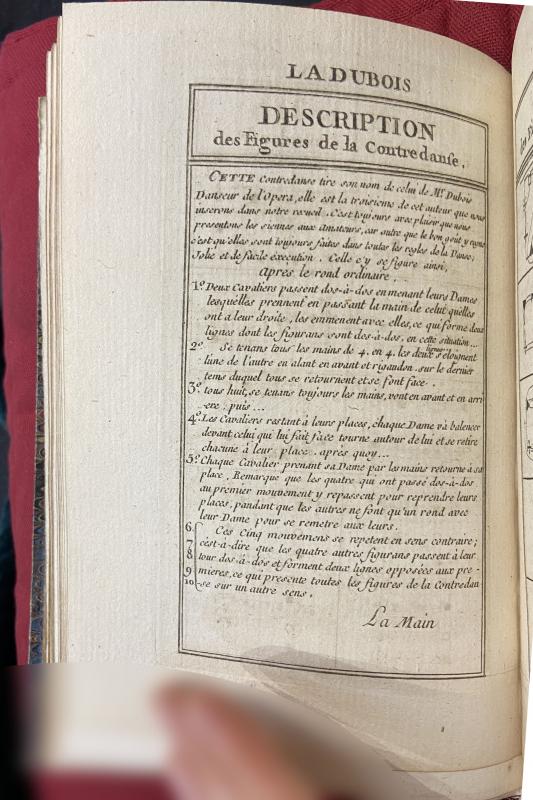 LA DUBOIS
DESCRIPTION
des Figures de la Contredanse.
CETTE Contredanse tire son nom de celui de Mr. Dubois
Danseur de l'Opera, elle est la troisieme de cet auteur que nous
inserons dans notre recueil. C'est toujours avec plaisir que nous
presentons les siennes aux Amateurs, car outre que le bon goût y regne
c'est qu'elles sont toujours faites dans toutes les regles de la Danse,
Jolie et de facile éxecution. Celle cy se figure ainsi,
Après le rond ordinaire.
1.º Deux Cavaliers passent dos-à-dos en menant leurs Dames
lesquelles prennent en passant la main de celui quelles
ont a leur droite, les emmenent avec elles, ce qui forme deux
lignes dont les figurans sont dos-à-dos, en cette situation...
2.º Se tenans tous les mains de 4. en 4. les deux lignes s'eloignent
l'une de l'autre en alant en avant et rigaudon. sur le dernier
tems duquel tous se retournent et se font face.
3.º tous huit, se tenans toujours les mains, vont en avant et en arri
-ere, puis...
4.º Les Cavaliers restant à leurs places, chaque Dame va balencer
devant celui qui lui fait face tourne autour de lui et se retire
chacune à leur place. après quoy...
5.º Chaque Cavalier prenant sa Dame par les mains retourne à sa
place, Remarque que les quatre qui ont passé dos-à-dos
au premier mouvement y repassent pour reprendre leurs
places, pandant que les autres ne font qu'un rond avec
leur Dame pour se remetre aux leurs.
6. Ces Cinq mouvemens se repetent en sens contraire;
7 c'est-à-dire que les quatre autres figurans passent à leur
8 tour dos-à-dos et forment deux lignes opposées aux pre-
9 mieres, ce qui presente toutes les figures de la Contredan
10 -se sur un autre sens.
La Main